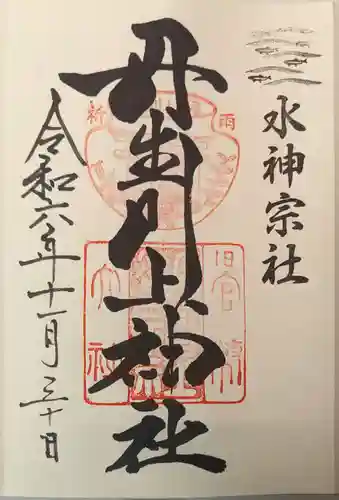 水神宗社
丹生川上神社
令和六年十一月三十日
雨
祈